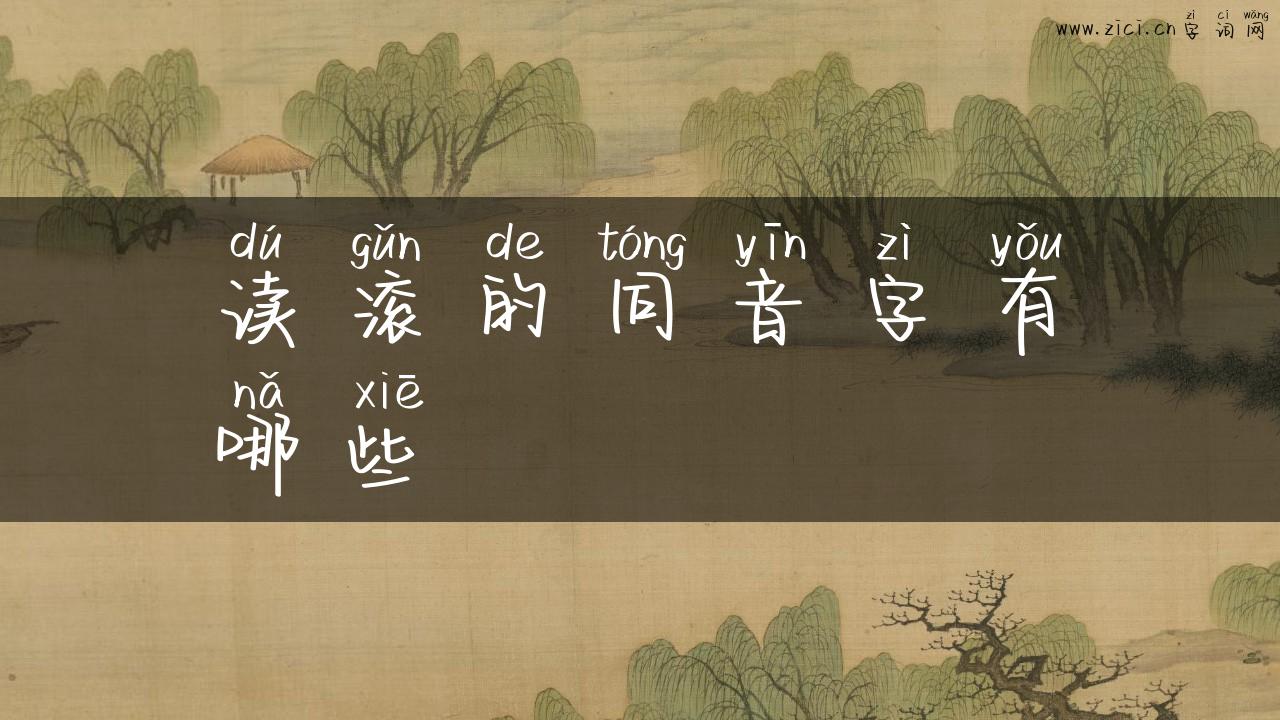 zì cí wǎng
www.zici.cn 字词网
dú gǔn de tóng yīn zì yǒu
读滚的同音字有
nǎ xiē
哪些